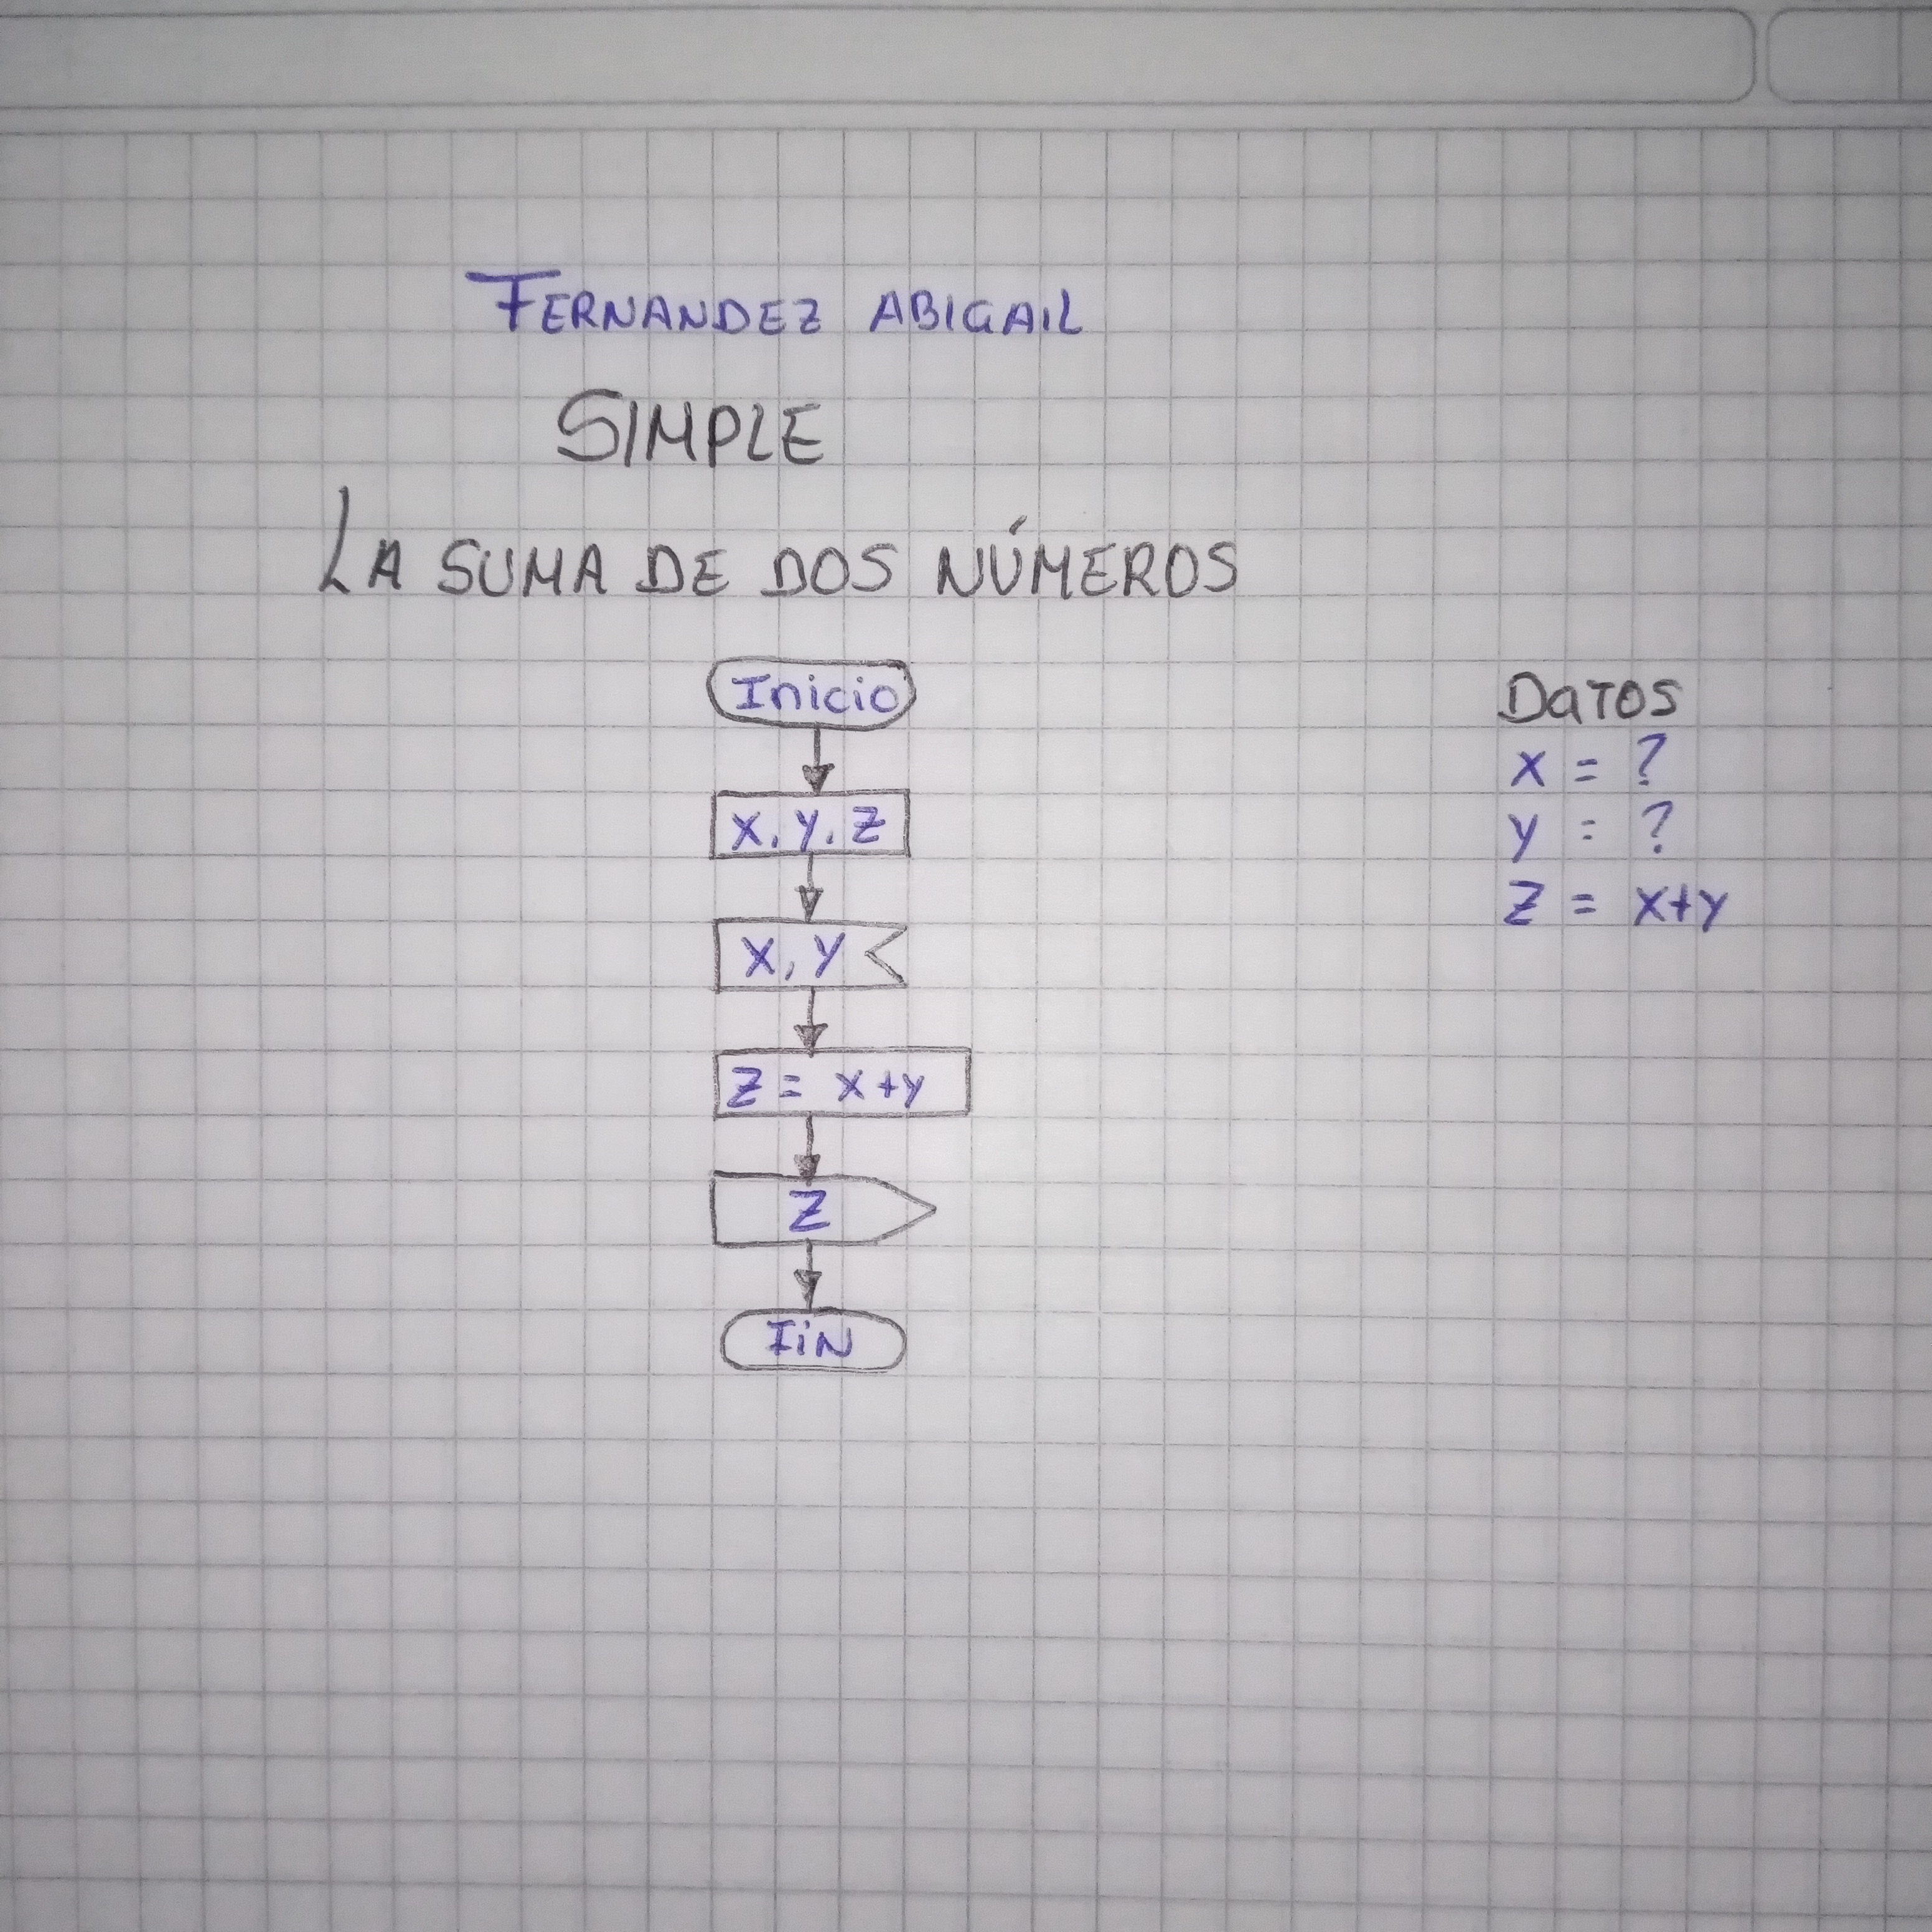 FERNANDEZ ABIGAIL
SIMPLE
LA SUMA DE DOS NÚMEROS
Inicio
X, Y, Z
X, Y
Z = X+Y
Z
FiN
DaTOS
X = ?
Y = ?
Z = X+Y